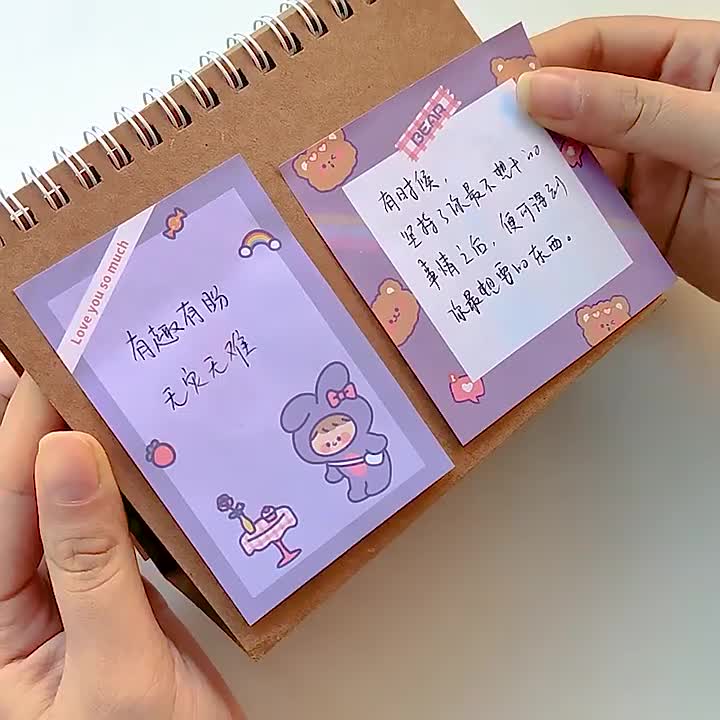 Love you so much
有趣有盼
无灾无难
BEAR
有时候，
坚持了你最不想干的
事情之后，便可得到
你最想要的东西。